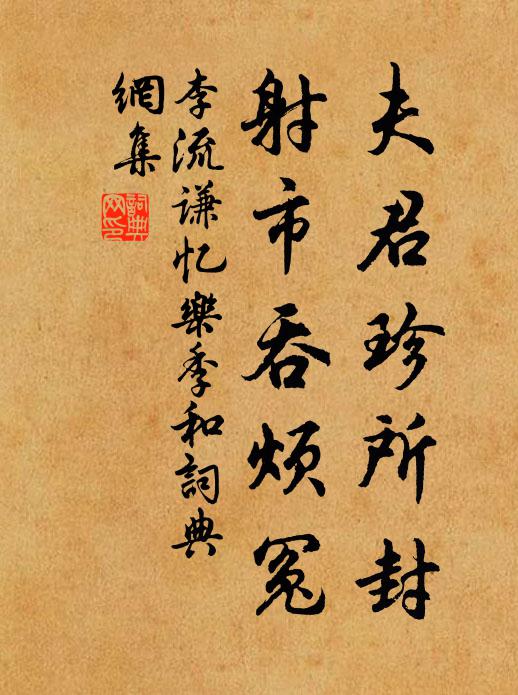 夫君珍所封
射市吞烦冤
李流谦忆樂季和詞典
網集
詞典
网印